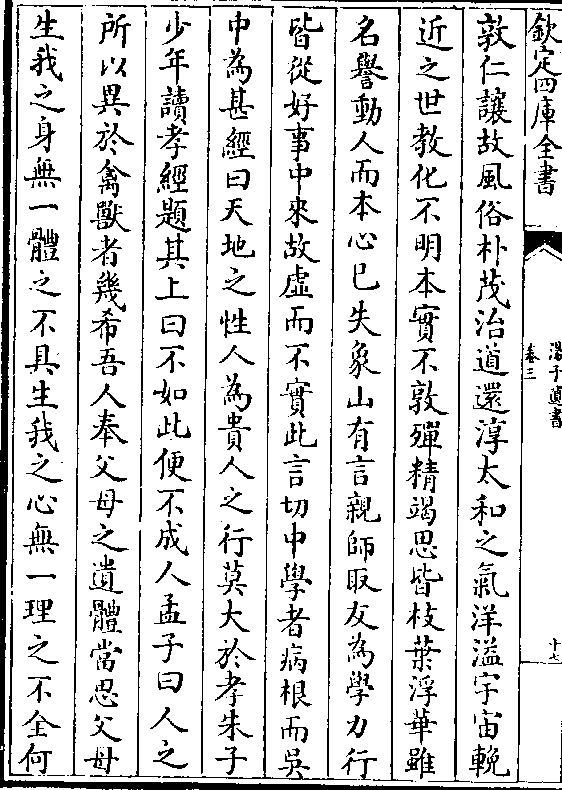 欽定四庫全書
湯子遺書
卷三
十七
敦仁讓故風俗朴茂治道還淳太和之氣洋溢宇宙輓
近之世教化不明本實不敦殫精竭思皆枝葉浮華雖
名譽動人而本心已失象山有言親師取友為學力行
皆從好事中來故虛而不實此言切中學者病根而吳
中為甚經曰天地之性人為貴人之行莫大於孝朱子
少年讀孝經題其上曰不如此便不成人孟子曰人之
所以異於禽獸者幾希吾人奉父母之遺體當思父母
生我之身無一體之不具生我之心無一理之不全何